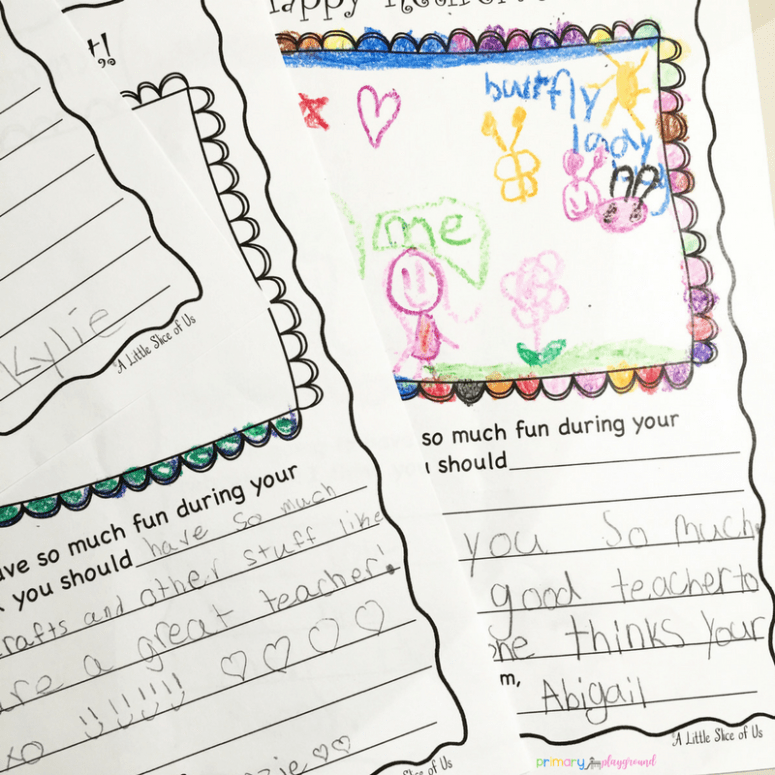 Happy Retirement
butrfly
lady
bug
me
so much fun during your
should
you So much
good teacher to
thinks your
m,
Abigail
A Little Slice of Us
primary playground
t!
Kylie
A Little Slice of Us
ave so much fun during your
you should have so much
crafts and other stuff like
are a great teacher!
xo
zie
Slice of Us